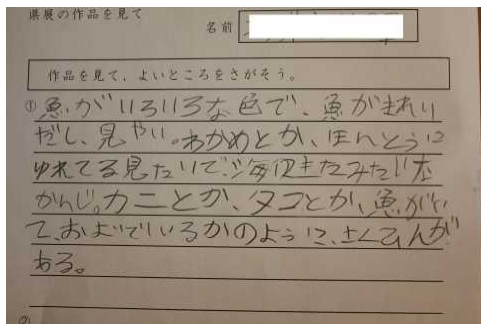 県展の作品を見て
名前
作品を見て、よいところをさがそう。
①魚がいろいろな色で、魚がまれり
だし、見やい。わかめとか、ほんとうに
ゆれてる見たいで、海に
かんじ。カニとか、タコとか、魚がい
て、およいでいるかのように、
ある。